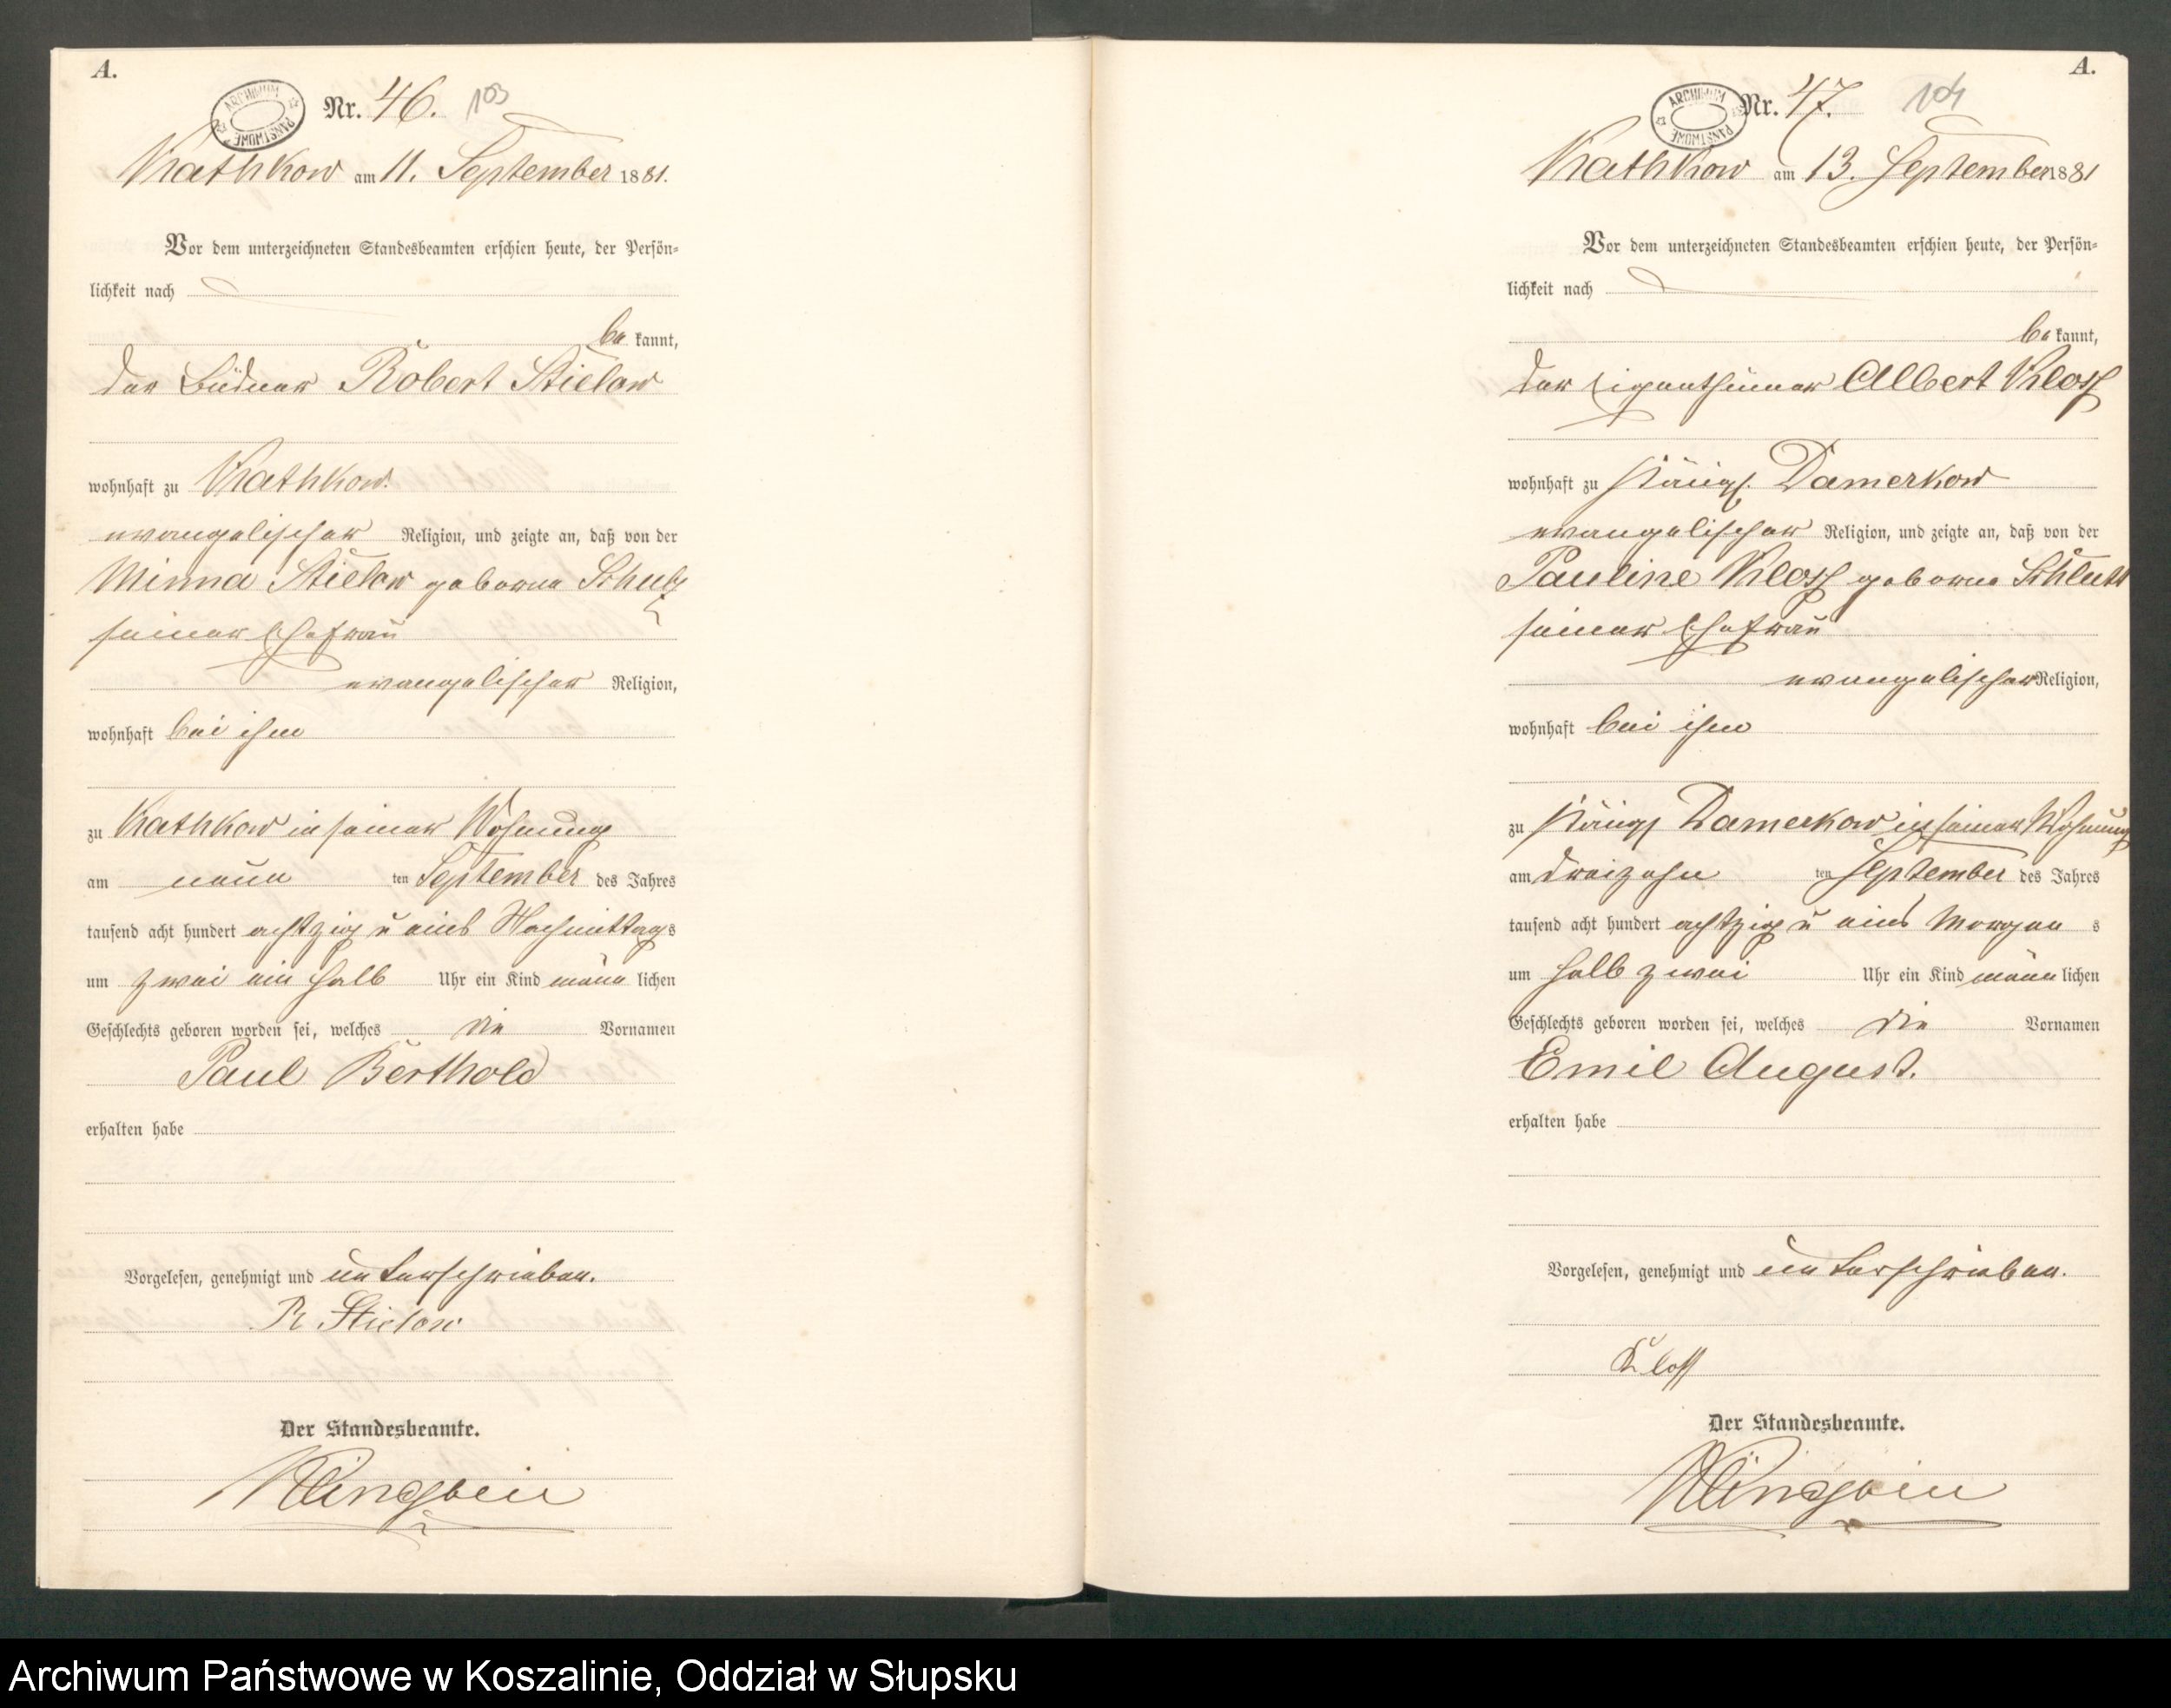 A.
Nr. 46. 103
ARCHIWUM PAŃSTWOWE
Kathkow am 11. September 1881.
Vor dem unterzeichneten Standesbeamten erschien heute, der Persön-
lichkeit nach
be kannt,
der Büdner Robert Stielow
wohnhaft zu Kathkow.
evangelischer Religion, und zeigte an, daß von der
Minna Stielow geborne Schulz
seiner Ehefrau
evangelischer Religion,
wohnhaft bei ihm
zu Kathkow in seiner Wohnung
am neun ten September des Jahres
tausend acht hundert achtzig u eins Nachmittags
um zwei ein halb Uhr ein Kind männ lichen
Geschlechts geboren worden sei, welches die Vornamen
Paul Berthold
erhalten habe
Vorgelesen, genehmigt und unterschrieben.
R Stielow
Der Standesbeamte.
A.
Nr. 47. 104
ARCHIWUM PAŃSTWOWE
Kathkow am 13. September 1881
Vor dem unterzeichneten Standesbeamten erschien heute, der Persön-
lichkeit nach
be kannt,
der Eigenthümer Albert Kloss
wohnhaft zu Königl. Damerkow
evangelischer Religion, und zeigte an, daß von der
Pauline Kloss geborne Schlutt
seiner Ehefrau
evangelischer Religion,
wohnhaft bei ihm
zu Königl Damerkow in seiner Wohnung
am dreizehn ten September des Jahres
tausend acht hundert achtzig u eins Morgen s
um halb zwei Uhr ein Kind männ lichen
Geschlechts geboren worden sei, welches die Vornamen
Emil August.
erhalten habe
Vorgelesen, genehmigt und unterschrieben.
Kloss
Der Standesbeamte.
Archiwum Państwowe w Koszalinie, Oddział w Słupsku